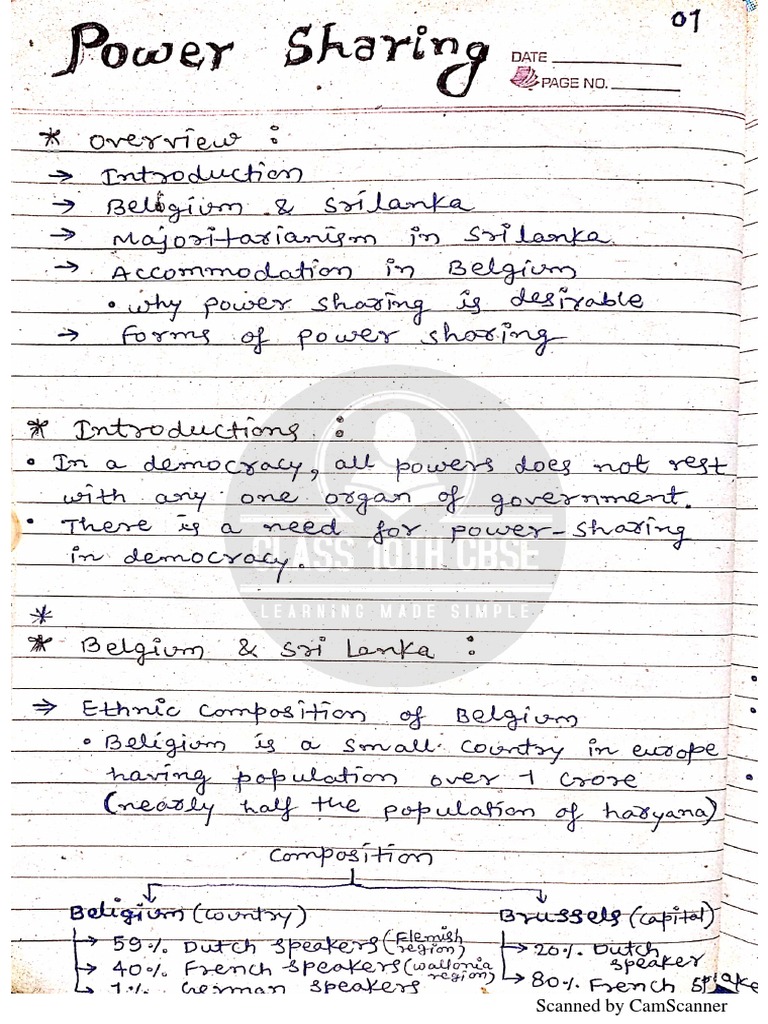 01
Power Sharing
DATE
PAGE NO.
* Overview :
→ Introduction
→ Beligium & Srilanka
→ Majoritarianism in Srilanka.
→ Accommodation in Belgium
• why power sharing is desirable
→ Forms of power sharing
* Introductions :
• In a democracy, all powers does not rest
with any one organ of government.
• There is a need for power-sharing
in democracy.
CLASS 10TH CBSE
LEARNING MADE SIMPLE
*
* Belgium & Sri Lanka :
⇒ Ethnic composition of Belgium
• Beligium is a small country in europe
having population over 1 crore
(nearly half the population of haryana)
Composition
Beligium (country)
Brussels (capital)
→ 59% Dutch speakers (Flemish region)
→ 20% Dutch speaker
→ 40% French speakers (wallonia region)
→ 80% French speake
1% German speakers
Scanned by CamScanner